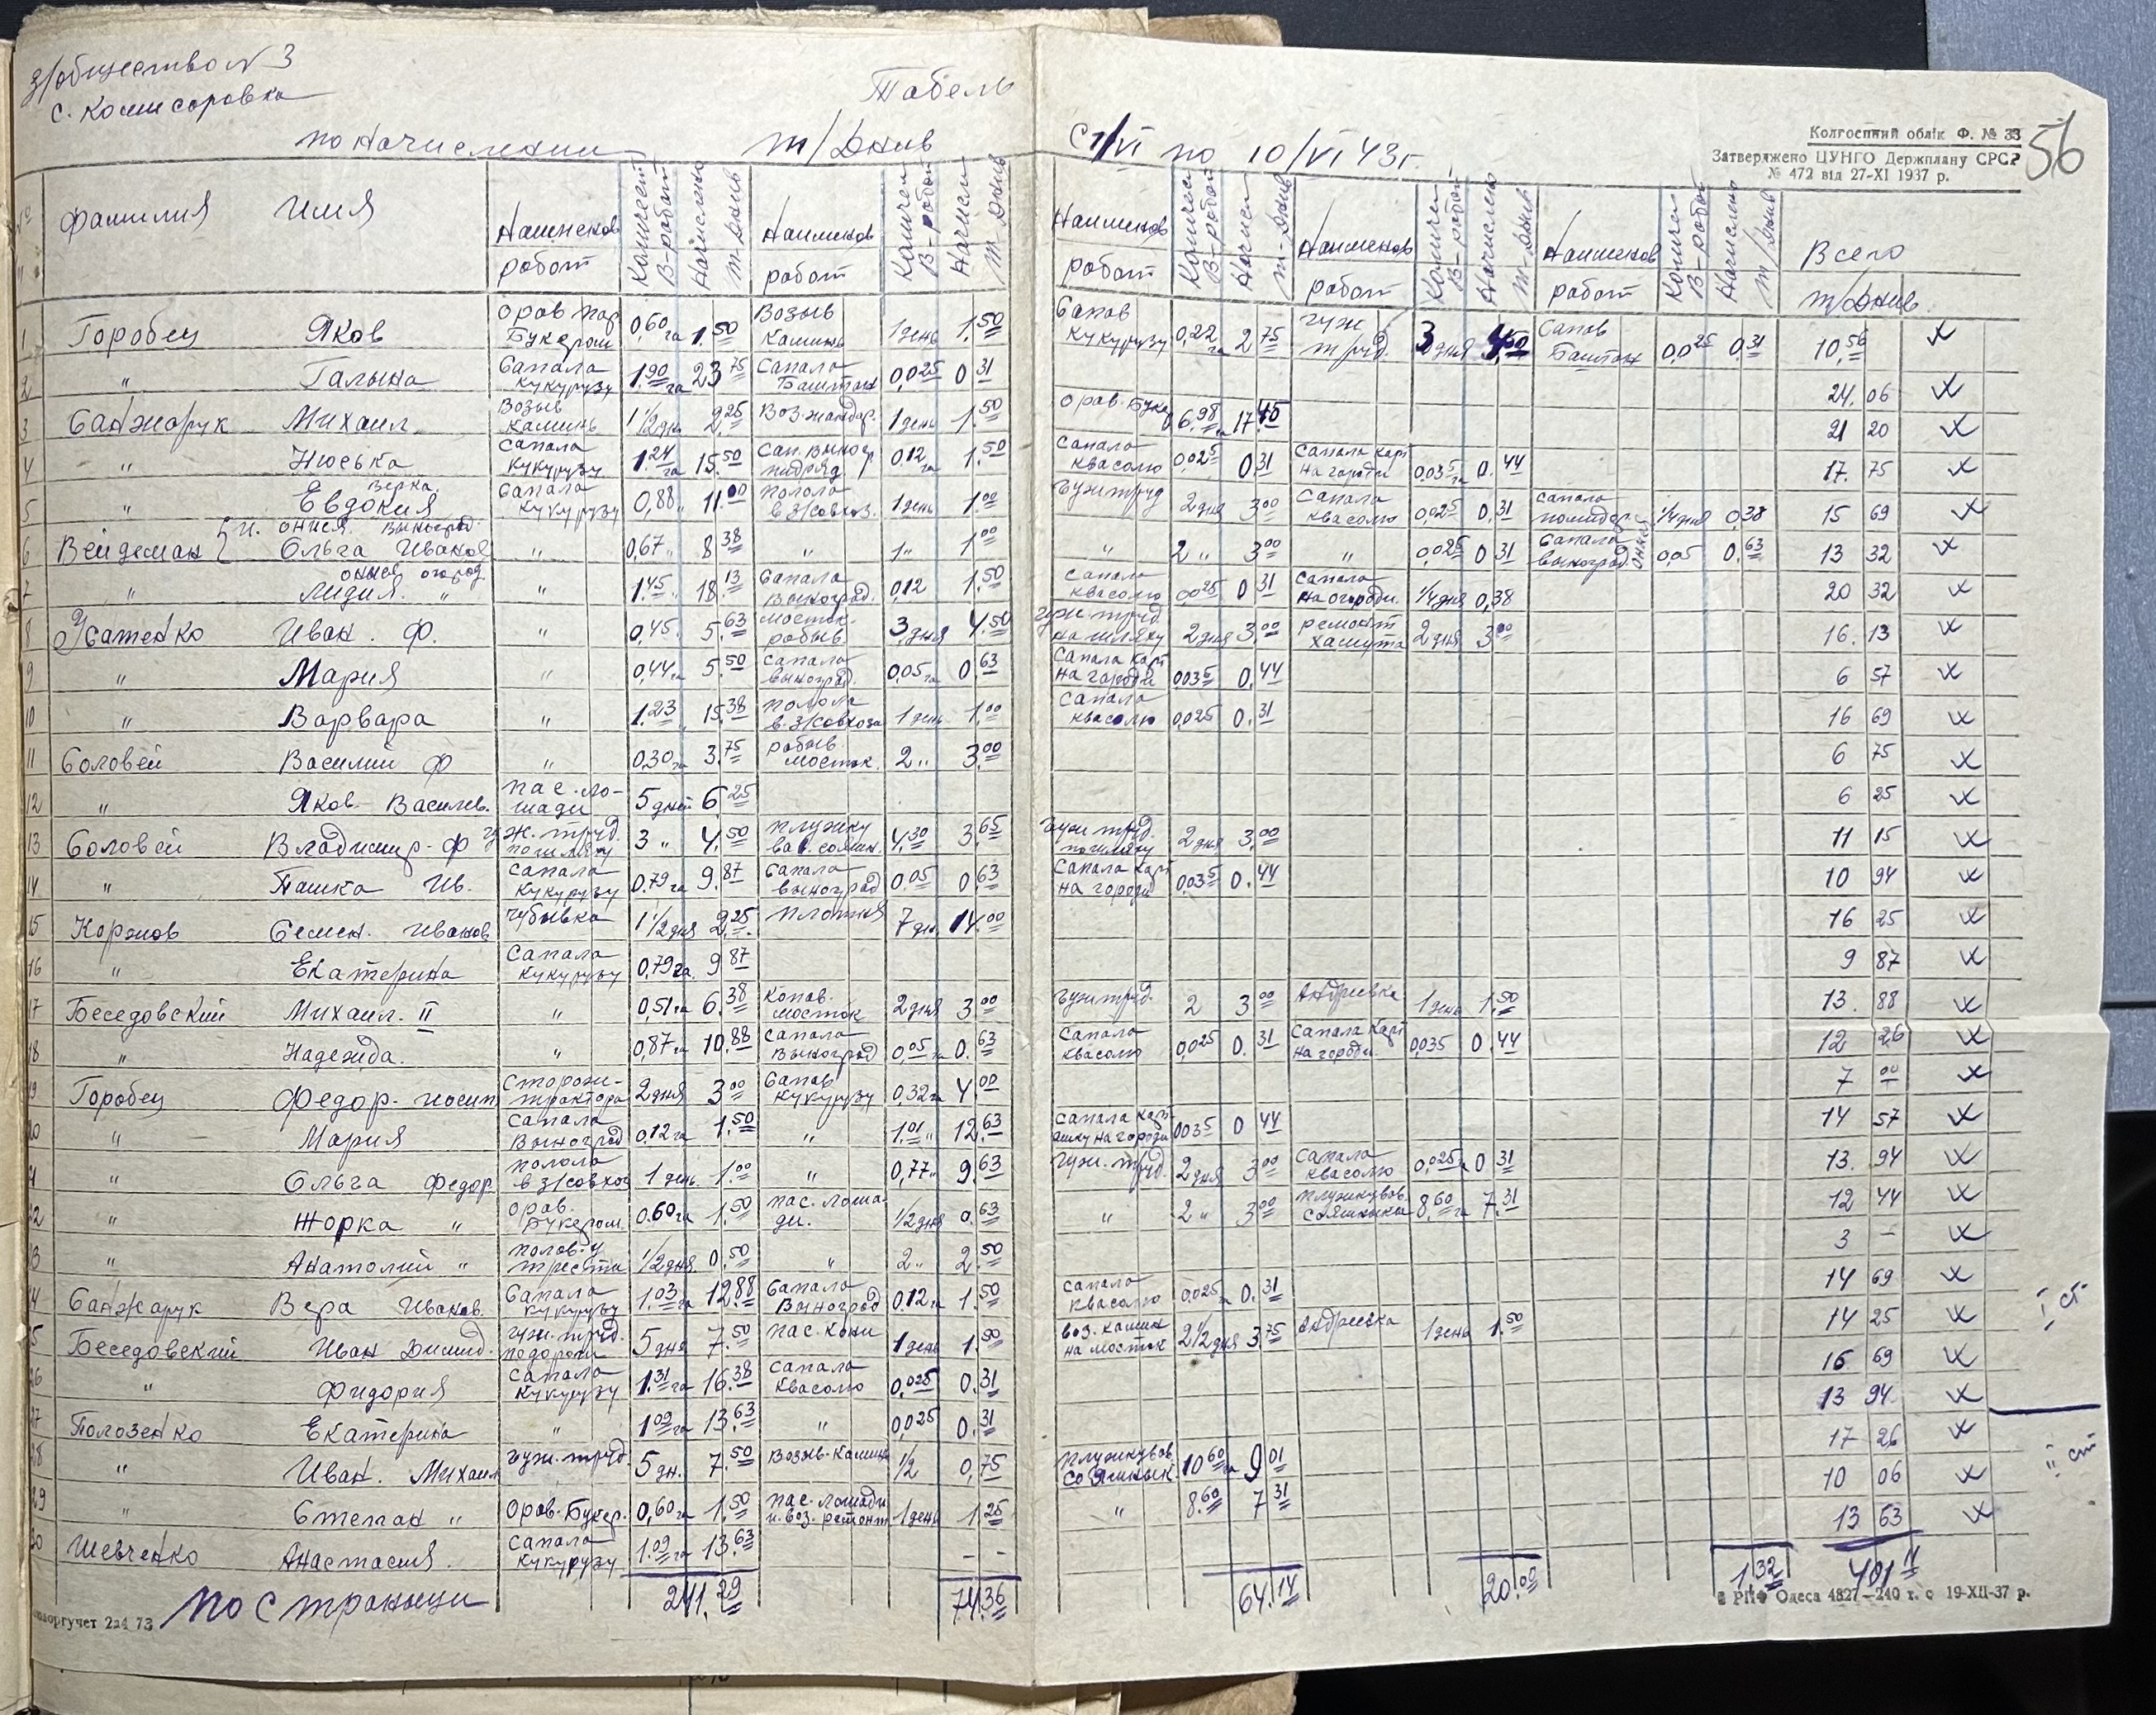 з/общество № 3
с. Комисаровка
Табель
по Начислении т/Днив с 1/VI по 10/VI 43 г.
Колгоспний облік Ф. № 33
Затверджено ЦУНГО Держплану СРСР
№ 472 від 27-XI 1937 р.
56
№ Фамилия Имя Наименов работ Количест В-работ Начислено т-Днив Наименов работ Количест В-работ Начислен т Днив Наименов работ Количест В-работ Начислен т-Днив Наименов работ Количест В-работ Начислено т-Днив Наименов работ Количест В-работ Начислено т/Днив Всего т/Днив
1 Горобец Яков Орав пар Букером 0,60 га 1.50 Возыв Каминь 1 день 1.50 Сапав Кукурузу 0,22 га 2 75 гуж труд. 3 дня 4.50 Сапав Баштан 0,025 0,31 10,56
2 " Галына Сапала кукурузу 1.90 га 23 75 Сапала Баштан 0,025 0 31 24.06
3 Санжарук Михаил Возыв каминь 1 1/2 дн 2,25 Воз. жандар. 1 день 1.50 Орав. Букер 6,98 га 17.45 21 20
4 " Нюська сапала кукурузу 1.24 га 15.50 Сап. Выногр 0,12 га 1.50 Сапала квасолю 0,025 0.31 Сапала карт на городи 0,035 га 0.44 17.75
5 " Верка Евдокия Сапала кукурузу 0,88 " 11.00 полола в з/совхоз. 1 день 1.00 гужтруд 2 дня 3.00 Сапала квасолю 0,025 0,31 сапала помидор 1/4 дня 0,38 15 69
6 Вейдеман Ольга Иванов " 0,67 " 8 38 " 1 " 1 00 " 2 " 3.00 " 0,025 0 31 Сапала выноград. 0,05 0.63 13 32
7 " Лидия. " 1.45 " 18.13 Сапала Выноград. 0,12 1.50 Сапала квасолю 0,025 0 31 Сапала на огороди. 1/4 дня 0,38 20 32
8 Усатенко Иван. Ф. " 0,45. 5.63 мосток. робыв. 3 дня 4.50 гуж. труд. на шляху 2 дня 3.00 ремонт хамута 2 дня 3.00 16.13
9 " Мария " 0,44 га 5.50 сапала выноград. 0,05 га 0 63 Сапала карт на городи 0,035 0,44 6 57
10 " Варвара " 1.23 " 15.38 полола в. з/совхоза 1 день 1.00 Сапала квасолю 0,025 0.31 16 69
11 Соловей Василий Ф " 0,30 га 3.75 робыв. мосток. 2 " 3.00 6 75
12 " Яков. Василев. пас. лошади 5 дней 6.25 6 25
13 Соловей Владимир. Ф гуж. труд. по шляху 3 " 4.50 плужку 4.30 3.65 гуж труд. по шляху 2 дня 3.00 11 15
14 " Пашка Ив. сапала кукурузу 0.79 га 9.87 Сапала выноград 0,05 0,63 Сапала карт на городи 0,035 0.44 10 94
15 Коржов Семен. Иванов. чубывка 1 1/2 дня 2.25 плотня 7 дн. 14.00 16 25
16 " Екатерина Сапала кукурузу 0,79 га. 9 87 9 87
17 Беседовский Михаил. II " 0,51 га 6.38 копав. мосток 2 дня 3.00 гуж труд. 2 3 00 Андриевка 1 день 1.50 13.88
18 " Надежда. " 0,87 га 10.88 сапала Выноград 0,05 га 0.63 Сапала квасолю 0,025 0.31 Сапала карт на городи. 0,035 0.44 12 26
19 Горобец Федор. иосип сторож. трактора 2 дня 3 00 Сапав Кукурузу 0,32 га 4.00 7 00
20 " Мария сапала Выноград 0,12 га 1.50 " 1.01 " 12.63 Сапала карт на городи 0,035 0 44 14 57
21 " Ольга Федор полола в з/совхоз 1 день. 1.00 " 0,77 " 9.63 гуж. труд. 2 дня 3 00 Сапала квасолю 0,025 га 0 31 13.94
22 " Жорка " орав. Букером 0.60 га 1.50 пас. лошади. 1/2 дня 0.63 " 2 " 3 00 плужкував. сояшныки 8.60 га 7.31 12 44
23 " Анатолий " 1/2 дня 0.50 " 2 " 2.50 3 –
24 Санжарук Вера Иванов. Сапала кукурузу 1.03 га 12.88 Сапала Выноград 0.12 га 1.50 сапала квасолю 0,025 га 0.31 14 69
25 Беседовский Иван Димид. гуж. труд. по дороги 5 дня 7.50 пас. кони 1 день 1.50 воз. камин на мосток 2 1/2 дня 3.75 Андриевка 1 день 1.50 14 25
26 " Фидория сапала кукурузу 1.31 га 16.38 сапала квасолю 0,025 0.31 16 69
27 Полозенко Екатерина " 1.09 га 13.63 " 0,025 0.31 13 94.
28 " Иван. Михаил гуж. труд. 5 дн. 7.50 Возыв. Каминь 1/2 0,75 плужкував сояшнык. 10.60 га 9 01 17 26
29 " Степан " Орав. Букер. 0,60 га 1.50 пас. лошади и воз. ремонт 1 день 1.25 " 8.60 7 31 10 06
30 Шевченко Анастасия. сапала кукурузу 1.09 га 13.63 – – 13 63
I ст.
II ст
по Страници 241.29 74.36 64.14 20.00 1.32 401 11
РПФ Одеса 4827—240 т. с 19-XII-37 р.